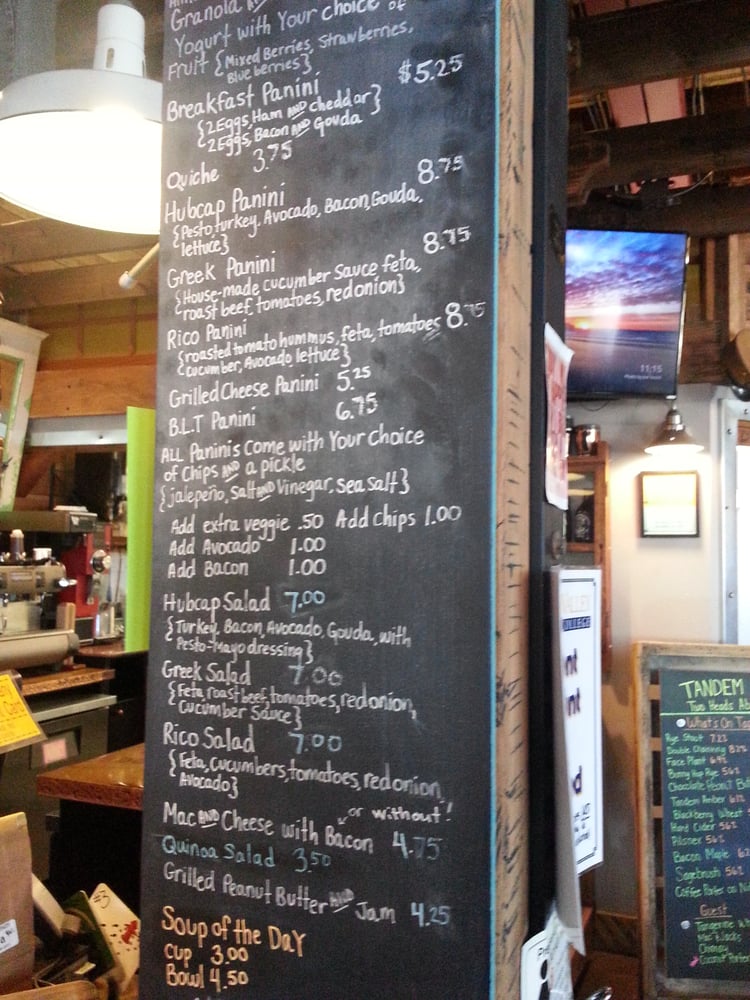 Granola
Yogurt with Your choice of
Fruit {Mixed Berries, Strawberries,
Blueberries}
Breakfast Panini $5.25
{2 Eggs, Ham AND cheddar}
2 Eggs, Bacon AND Gouda
Quiche 3.75
Hubcap Panini 8.75
{Pesto, turkey, Avocado, Bacon, Gouda,
lettuce}
Greek Panini 8.75
{House-made cucumber Sauce feta,
roast beef, tomatoes, red onion}
Rico Panini 8.75
{roasted tomato hummus, feta, tomatoes
cucumber, Avocado lettuce}
Grilled Cheese Panini 5.25
B.L.T Panini 6.75
ALL Paninis come with Your choice
of Chips AND a pickle
{jalepeño, Salt AND Vinegar, Sea salt}
Add extra veggie .50 Add chips 1.00
Add Avocado 1.00
Add Bacon 1.00
Hubcap Salad 7.00
{Turkey, Bacon, Avocado, Gouda, with
Pesto-Mayo dressing}
Greek Salad 7.00
{Feta, roast beef, tomatoes, red onion,
Cucumber Sauce}
Rico Salad 7.00
{Feta, Cucumbers, tomatoes, red onion,
Avocado}
or without!
Mac AND Cheese with Bacon 4.75
Quinoa Salad 3.50
Grilled Peanut Butter AND Jam 4.25
Soup of the Day
Cup 3.00
Bowl 4.50
11:15
VALLEY
OLLEGE
nt
nt
d
#3
TANDEM
Two Heads
What's On Tap
Rye Stout 7.2%
Double Chainring 8.2%
Face Plant 6.4%
Bunny Hop Rye 5.6%
Chocolate Peanut
Tandem Amber
Blackberry Wheat
Hard Cider 5.6%
Pilsner 5.6%
Bacon Maple
Sagebrush 5.6%
Coffee Porter on
Guest
Tangerine
Mac & Jacks
Chimay
Coconut Porter